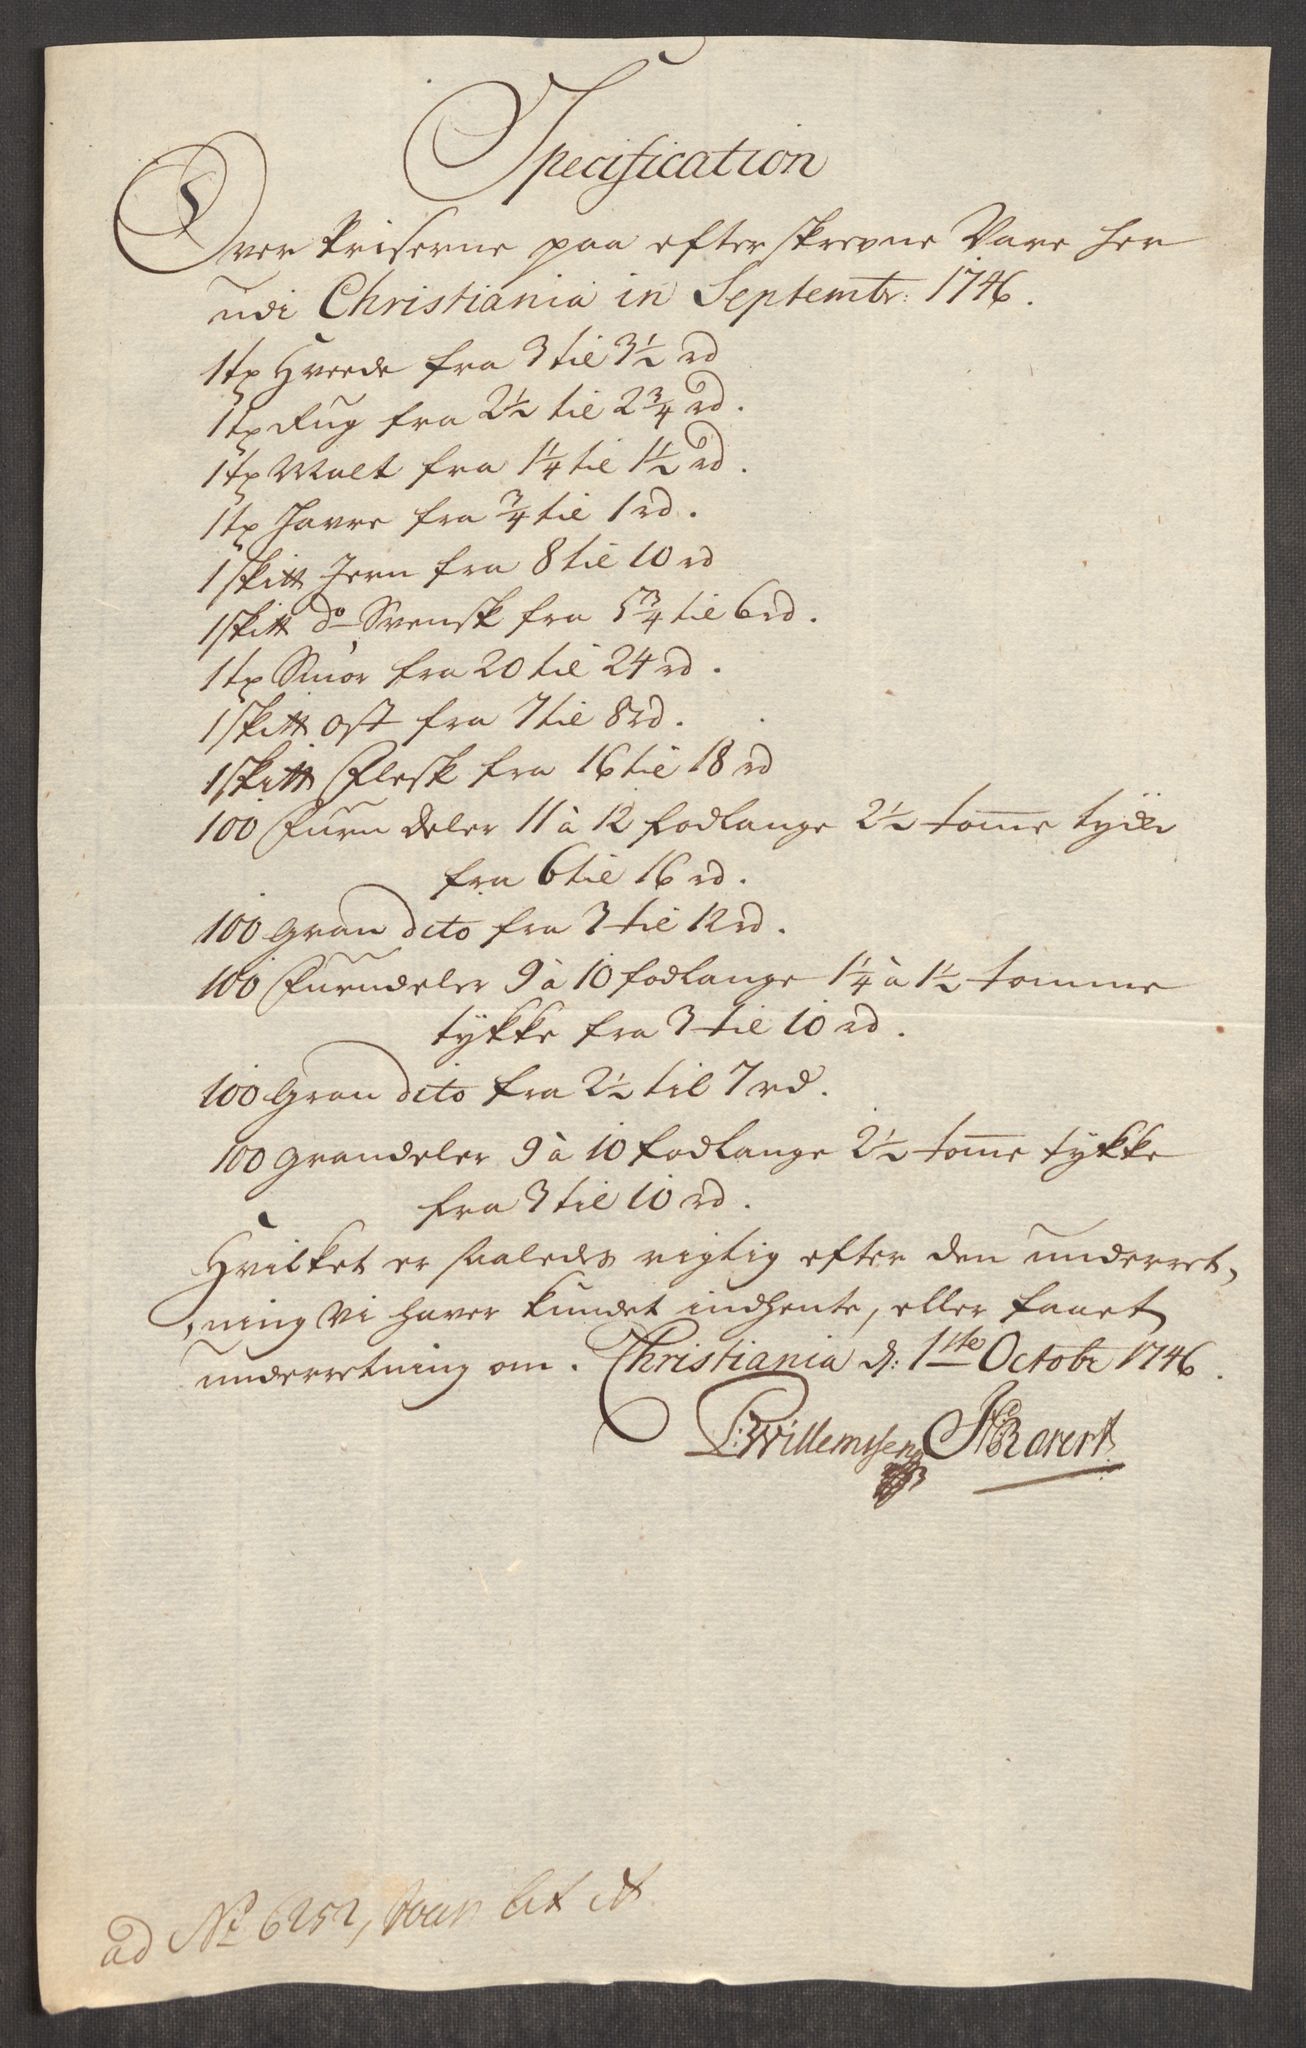 Specification
Over Priserne paa efterskrevne Vare her
udi Christiania in Septembr: 1746.
1 tp Hvede fra 3 til 3½ rd
1 tp Rug fra 2½ til 2¾ rd.
1 tp Malt fra 1¼ til 1½ rd.
1 tp Havre fra ¾ til 1 rd.
1 skitt Jern fra 8 til 10 rd
1 skitt do Svensk fra 5¾ til 6 rd.
1 tp Smør fra 20 til 24 rd.
1 skitt Ost fra 7 til 8 rd.
1 skitt Flesk fra 16 til 18 rd
100 Furu deler 11 à 12 fodlange 2½ tome tycke
fra 6 til 16 rd.
100 Gran dito fra 3 til 12 rd.
100 Furudeler 9 à 10 fodlange 1¼ à 1½ tomme
tykke fra 3 til 10 rd.
100 Gran dito fra 2½ til 7 rd.
100 Grandeler 9 à 10 fodlange 2½ tome tykke
fra 3 til 10 rd.
Hvilket er saaledes rigtig efter den underret,
,ning vi haver kundet indhente, eller faaet
underretning om. Christiania d: 1ste Octobr 1746.
P: Willemssen
ad No 6252,